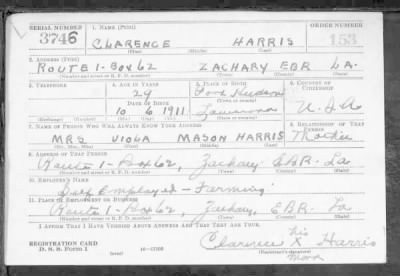 SERIAL NUMBER 1. NAME (Print) ORDER NUMBER
3746 CLARENCE HARRIS 153
(First) (Middle) (Last)
2. ADDRESS (Print)
ROUTE 1-BOX 62 ZACHARY EBR LA.
(Number and street or R. F. D. number) (Town) (County) (State)
3. TELEPHONE 4. AGE IN YEARS 5. PLACE OF BIRTH 6. COUNTRY OF CITIZENSHIP
29 Port Hudson
DATE OF BIRTH (Town or county)
10 6 1911 Louisiana U.S.A
(Exchange) (Number) (Mo.) (Day) (Yr.) (State or country)
7. NAME OF PERSON WHO WILL ALWAYS KNOW YOUR ADDRESS 8. RELATIONSHIP OF THAT PERSON
MRS VIOLA MASON HARRIS Mother
(Mr., Mrs., Miss) (First) (Middle) (Last)
9. ADDRESS OF THAT PERSON
Route 1-Box 62, Zachary EBR. La
(Number and street or R. F. D. number) (Town) (County) (State)
10. EMPLOYER'S NAME
Self Employed - Farming
11. PLACE OF EMPLOYMENT OR BUSINESS
Route 1-Box 62, Zachary, EBR. La
(Number and street or R. F. D. number) (Town) (County) (State)
I AFFIRM THAT I HAVE VERIFIED ABOVE ANSWERS AND THAT THEY ARE TRUE.
his
REGISTRATION CARD Clarence X Harris
D. S. S. Form 1 (Registrant's signature)
mark